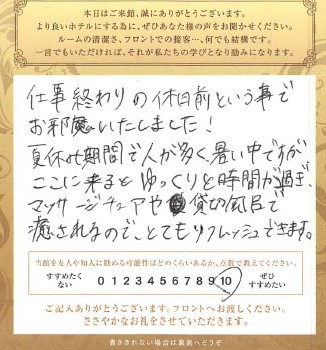 本日はご来館、誠にありがとうございます。
より良いホテルにする為に、ぜひあなた様の声をお聞かせください。
ルームの清潔さ、フロントでの接客…、何でも結構です。
一言でもいただければ、それが私たちの学びとなり励みになります。
仕事終わりの休日前という事で
お邪魔いたしました！
夏休み期間で人が多く、暑い中ですが
ここに来るとゆっくりと時間が過ぎ、
マッサージチェアや貸切風呂で
癒されるので、とてもリフレッシュできます。
当館を友人や知人に勧める可能性はどのくらいあるか、点数で教えてください。
すすめたくない 0 1 2 3 4 5 6 7 8 9 10 ぜひすすめたい
ご記入ありがとうございます。フロントへお渡しください。
ささやかなお礼をさせていただきます。
書ききれない場合は裏面へどうぞ